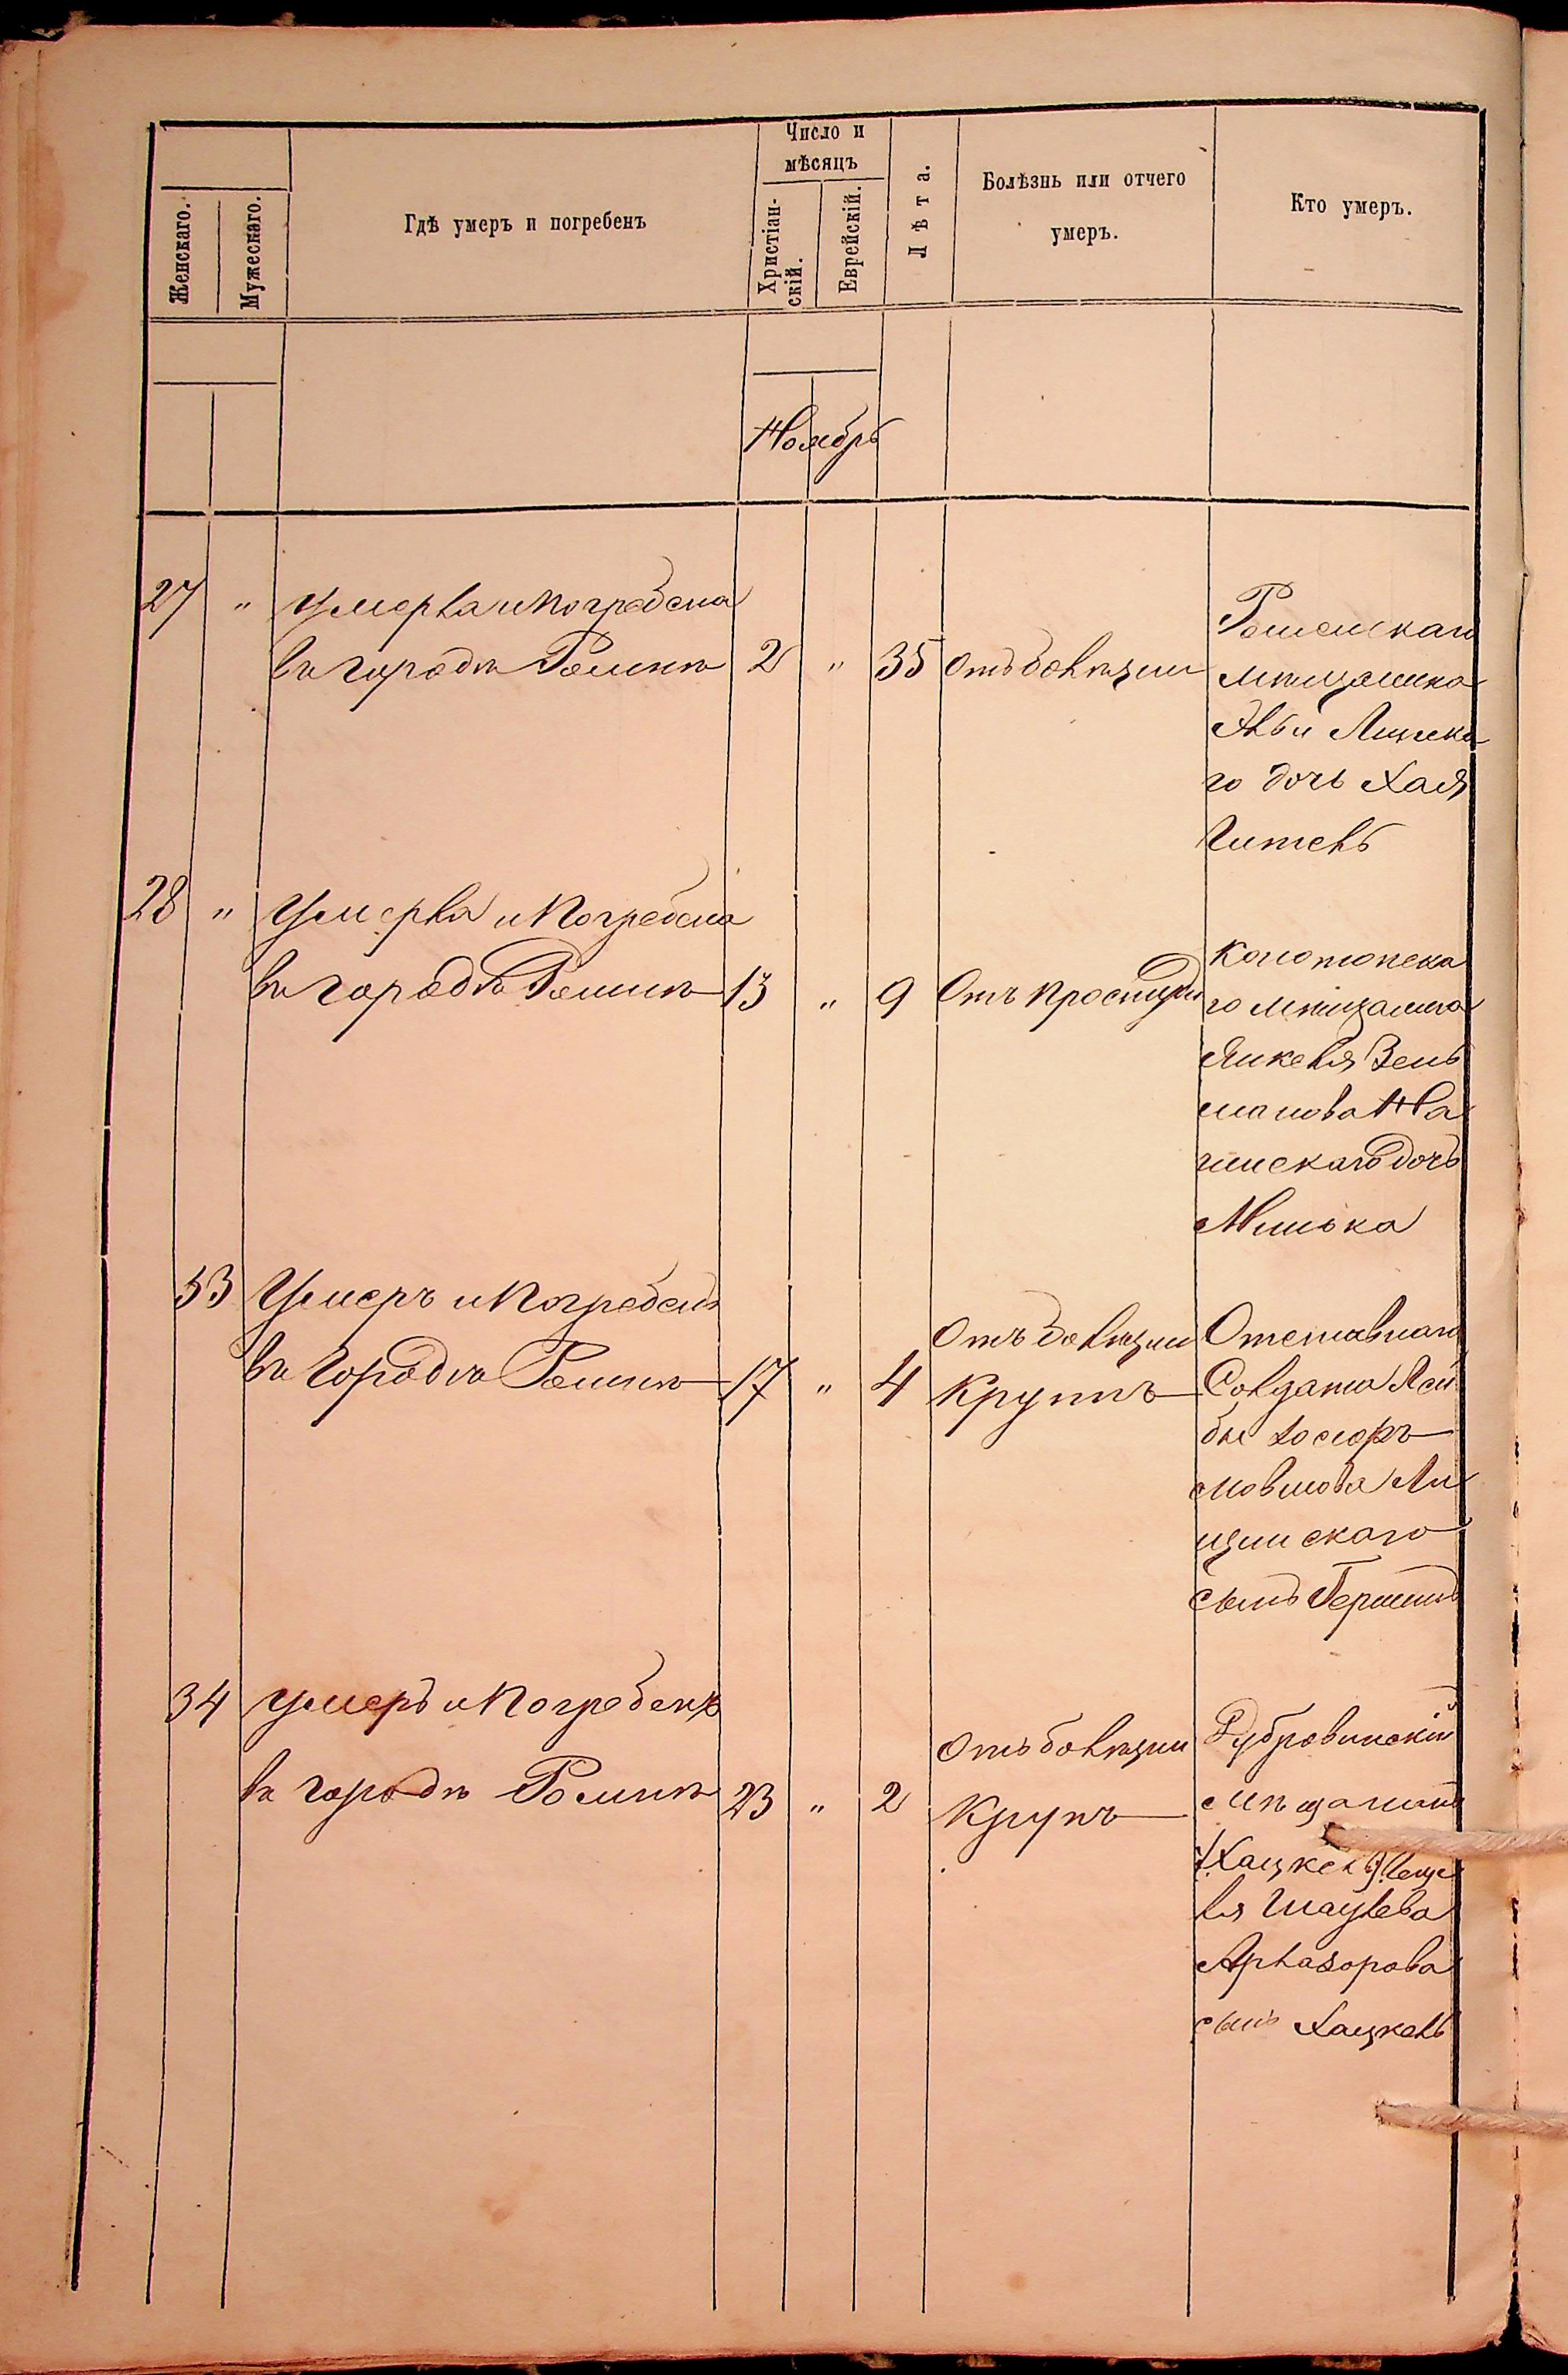 Число и
мѣсяцъ
Женскаго.
Мужескаго.
Гдѣ умеръ и погребенъ
Христіан-
скій.
Еврейскій.
Лѣта.
Болѣзнь или отчего
умеръ.
Кто умеръ.
Ноябрь
27 " Умерла и погребена
въ городѣ Ромнѣ 2 " 35 отъ болѣзни
Роменскаго
мѣщанина
го дочь Хая
Гитель
28 " Умерла и погребена
въ городѣ Ромнѣ 13 " 9 Отъ простуды
Конотопска
го мѣщанина
Янкеля Зель
манова
скаго дочь
Минька
33 Умеръ и погребенъ
въ городѣ Ромнѣ 17 " 4
отъ болѣзни
крупъ
Отставнаго
Солдата Лей
бы
сынъ Гершонъ
34 Умеръ и погребенъ
въ городѣ Ромнѣ 23 " 2
отъ болѣзни
крупъ
Дубровинскій
мѣщанинъ
Хацкель
ля Шаулева
Арлазорова
сынъ Хацкель